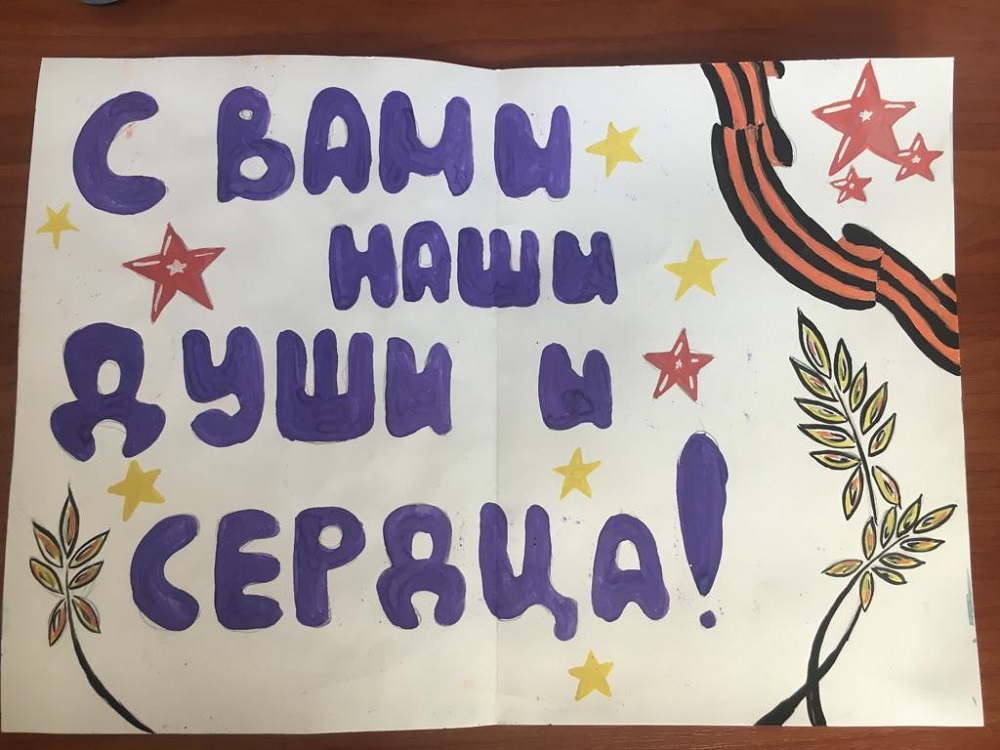 С ВАМИ
НАШИ
ДУШИ И
СЕРДЦА!